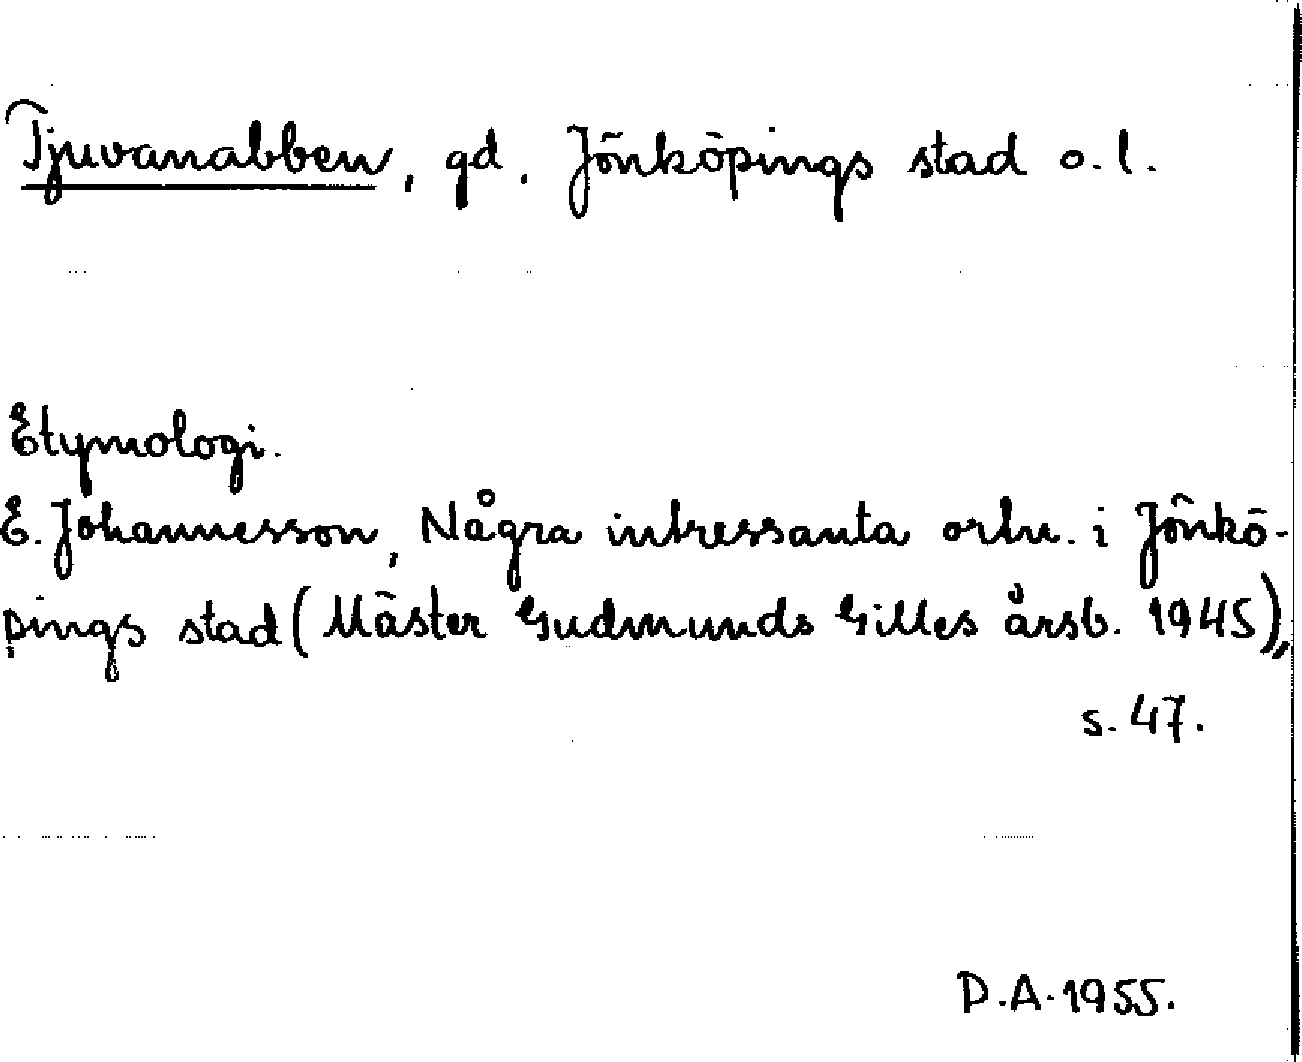 Tjuvanabben, gd. Jönköpings stad o. l.
Etymologi.
E. Johannesson, Några intressanta ortn. i Jönkö-
pings stad (Mäster Gudmunds Gilles årsb. 1945),
s. 47.
D.A. 1955.